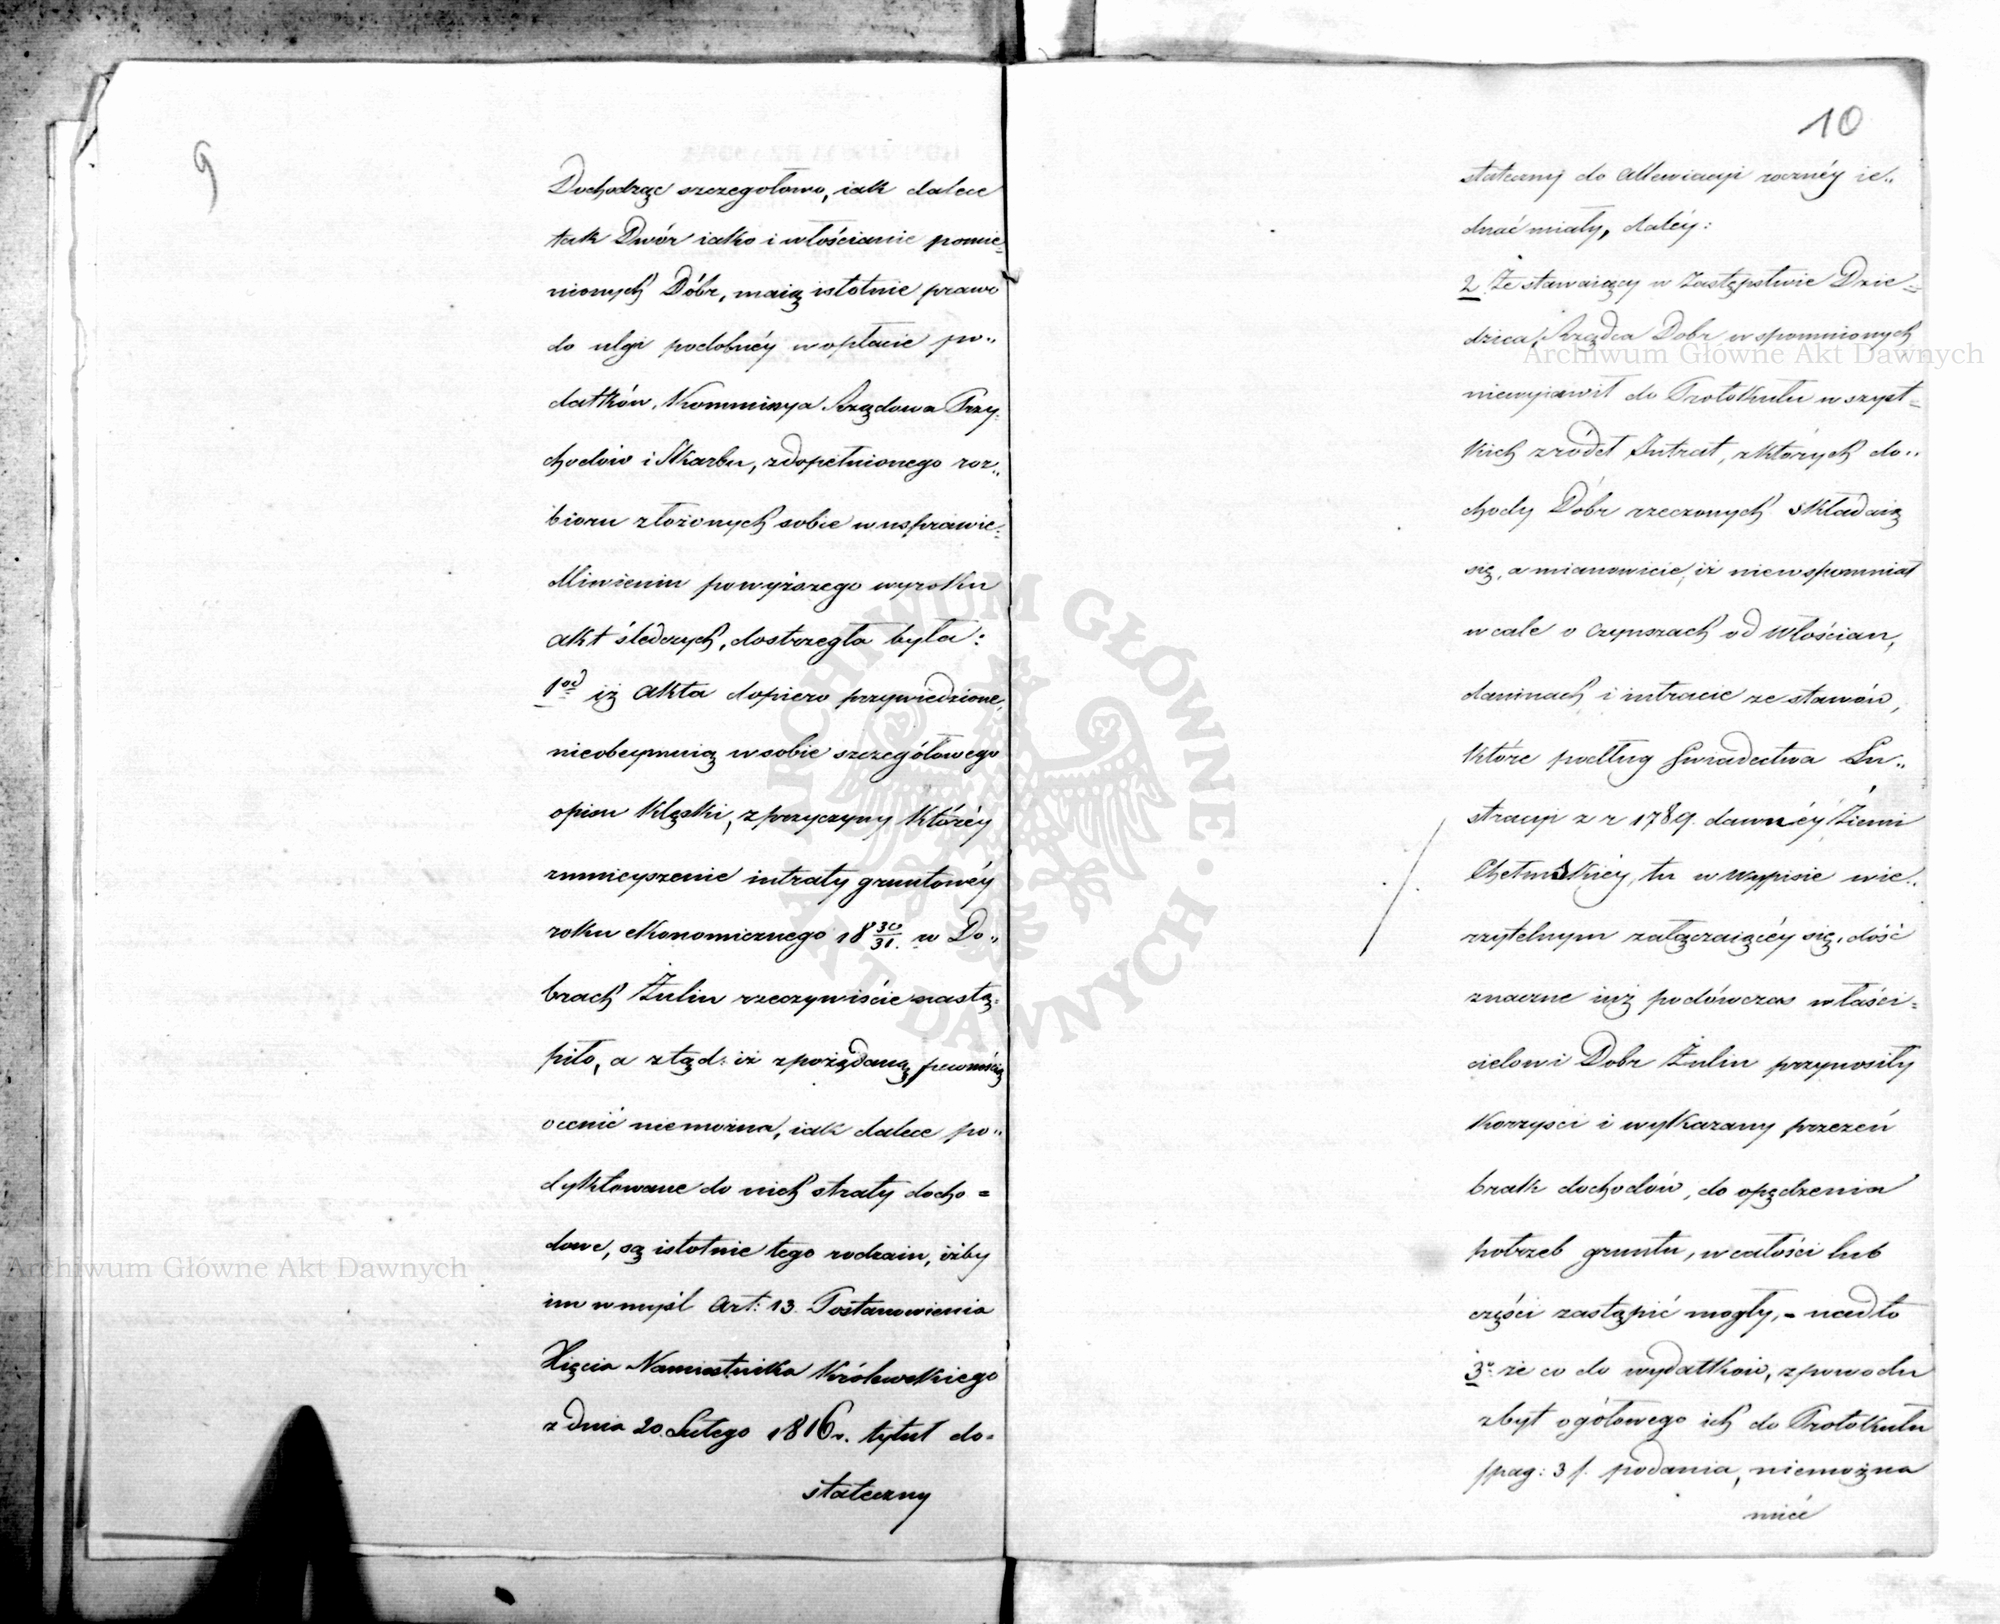 9
Dochodząc szczegółowo, iak dalece
tak Dwór iako i włościanie pomie=
nionych Dóbr, maią istotnie prawo
do ulgi podobnéy w opłacie po„
datków, Kommissya Rządowa Przy=
chodów i Skarbu, z dopełnionego roz„
bioru złożonych sobie w usprawie=
dliwieniu powyższego wyroku
akt śledczych, dostrzegła była:
1od iż akta dopiero przywiedzione,
nieobeymuią w sobie szczegółowego
opisu klęski, z przyczyny któréy
zmnieyszenie intraty gruntowéy
roku ekonomicznego 18 30/31. w Do„
brach Żulin rzeczywiście nastą=
piło, a ztąd: iż z pożądaną pewnością
ocenić niemożna, iak dalece po„
dyktowane do nich straty docho=
dowe, są istotnie tego rodzaiu, iżby
im w myśl Art: 13. Postanowienia
Xięcia Namiestnika Królewskiego
z dnia 20. Lutego 1816 r. tytuł do=
stateczny
10
stateczny do allewiacyi rocznéy ie„
dnać miały, daléy:
2. Że stawaiący w zastępstwie Dzie=
dzica, Rządca Dobr wspomnionych
niewyiawił do Protokułu wszyst=
kich zródeł Intrat, z których do„
chody Dóbr rzeczonych składaią
się, a mianowicie, iż niewspomniał
wcale o czynszach od Włościan,
daninach i intracie ze stawów,
które podług Swiadectwa Lu„
stracyi z r 1789. dawnéy Ziemi
Chełmskiéy, tu w wypisie wie„
rzytelnym załączaiącéy się, dość
znaczne iuż podówczas właści=
cielowi Dobr Żulin przynosiły
korzyści i wykazany przezeń
brak dochodów, do opędzenia
potrzeb gruntu, w całości lub
części zastąpić mogły, - nadto
3o. że co do wydatków, z powodu
zbyt ogółowego ich do Protokułu
/pag: 3/. podania, niemożna
mieć
Archiwum Główne Akt Dawnych
Archiwum Główne Akt Dawnych
ARCHIWUM GŁÓWNE · AKT DAWNYCH ·